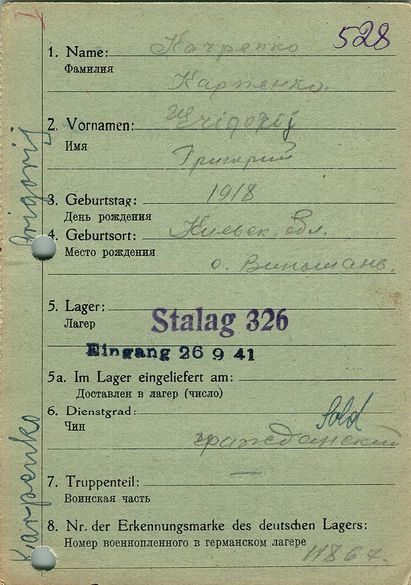 528
1. Name:
Фамилия
Карпенко
2. Vornamen:
Имя
Григорий
3. Geburtstag: 1918
День рождения
4. Geburtsort: Киевск. обл.
Место рождения
с.
5. Lager:
Лагер
Stalag 326
Eingang 26 9 41
5a. Im Lager eingeliefert am:
Доставлен в лагер (число)
6. Dienstgrad: Sold
Чин
гражданский
7. Truppenteil: —
Воинская часть
8. Nr. der Erkennungsmarke des deutschen Lagers:
Номер военнопленного в германском лагере
11864
Karpenko
Grigorij